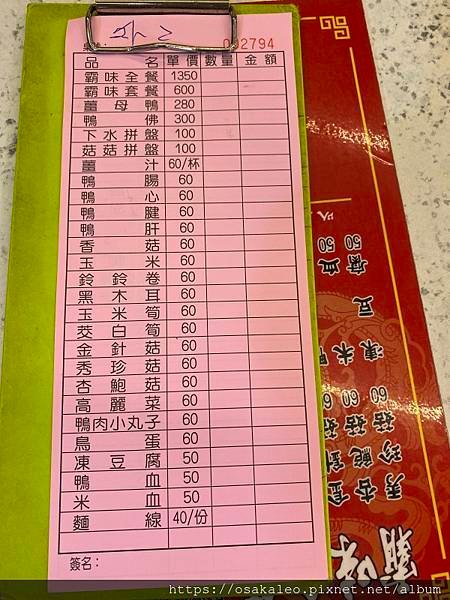 002794
品名 單價 數量 金額
霸味全餐 1350
霸味套餐 600
薑母鴨 280
鴨佛 300
下水拼盤 100
菇菇拼盤 100
薑汁 60/杯
鴨腸 60
鴨心 60
鴨腱 60
鴨肝 60
香菇 60
玉米 60
鈴鈴卷 60
黑木耳 60
玉米筍 60
茭白筍 60
金針菇 60
秀珍菇 60
杏鮑菇 60
高麗菜 60
鴨肉小丸子 60
鳥蛋 60
凍豆腐 50
鴨血 50
米血 50
麵線 40/份
簽名：
秀珍菇 60
杏鮑菇 60
金針菇 6
凍豆腐 50
米血 50
霸味
https://osakaleo.pixnet.net/album